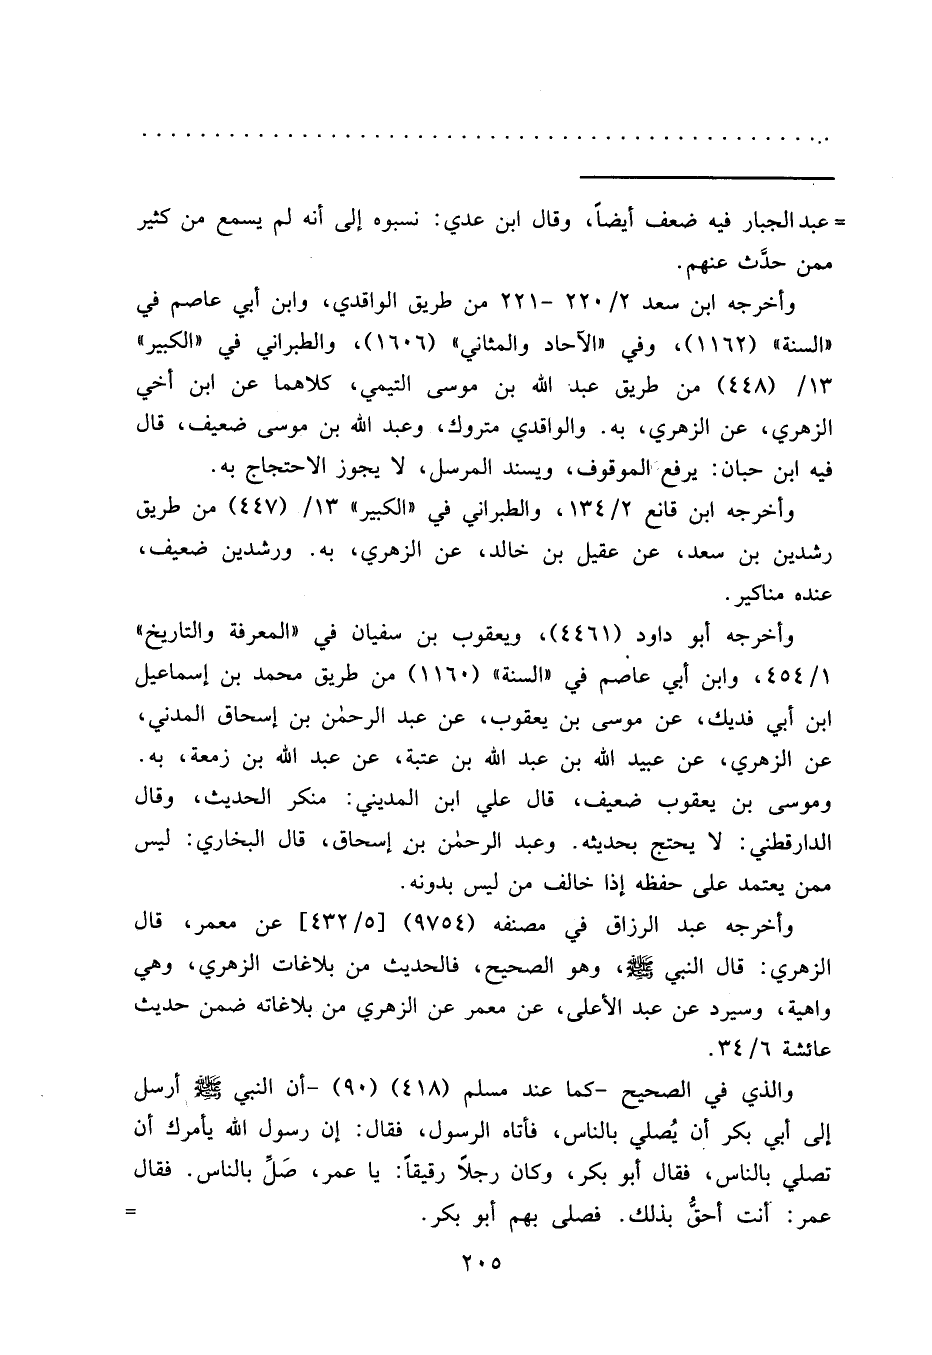 = عبد الجبار فيه ضعف أيضاً، وقال ابن عدي: نسبوه إلى أنه لم يسمع من كثير
ممن حدَّث عنهم.
وأخرجه ابن سعد ٢/ ٢٢٠ -٢٢١ من طريق الواقدي، وابن أبي عاصم في
«السنة» (١١٦٢)، وفي «الآحاد والمثاني» (١٦٠٦)، والطبراني في «الكبير»
١٣/ (٤٤٨) من طريق عبد الله بن موسى التيمي، كلاهما عن ابن أخي
الزهري، عن الزهري، به. والواقدي متروك، وعبد الله بن موسى ضعيف، قال
فيه ابن حبان: يرفع الموقوف، ويسند المرسل، لا يجوز الاحتجاج به.
وأخرجه ابن قانع ٢/ ١٣٤، والطبراني في «الكبير» ١٣/ (٤٤٧) من طريق
رشدين بن سعد، عن عقيل بن خالد، عن الزهري، به. ورشدين ضعيف،
عنده مناكير.
وأخرجه أبو داود (٤٤٦١)، ويعقوب بن سفيان في «المعرفة والتاريخ»
١/ ٤٥٤، وابن أبي عاصم في «السنة» (١١٦٠) من طريق محمد بن إسماعيل
ابن أبي فديك، عن موسى بن يعقوب، عن عبد الرحمٰن بن إسحاق المدني،
عن الزهري، عن عبيد الله بن عبد الله بن عتبة، عن عبد الله بن زمعة، به.
وموسى بن يعقوب ضعيف، قال علي ابن المديني: منكر الحديث، وقال
الدارقطني: لا يحتج بحديثه. وعبد الرحمٰن بن إسحاق، قال البخاري: ليس
ممن يعتمد على حفظه إذا خالف من ليس بدونه.
وأخرجه عبد الرزاق في مصنفه (٩٧٥٤) [٥/ ٤٣٢] عن معمر، قال
الزهري: قال النبي ﷺ، وهو الصحيح، فالحديث من بلاغات الزهري، وهي
واهية، وسيرد عن عبد الأعلى، عن معمر عن الزهري من بلاغاته ضمن حديث
عائشة ٦/ ٣٤.
والذي في الصحيح -كما عند مسلم (٤١٨) (٩٠) -أن النبي ﷺ أرسل
إلى أبي بكر أن يُصلي بالناس، فأتاه الرسول، فقال: إن رسول الله يأمرك أن
تصلي بالناس، فقال أبو بكر، وكان رجلاً رقيقاً: يا عمر، صَلِّ بالناس. فقال
عمر: أنت أحقُّ بذلك. فصلى بهم أبو بكر. =
٢٠٥